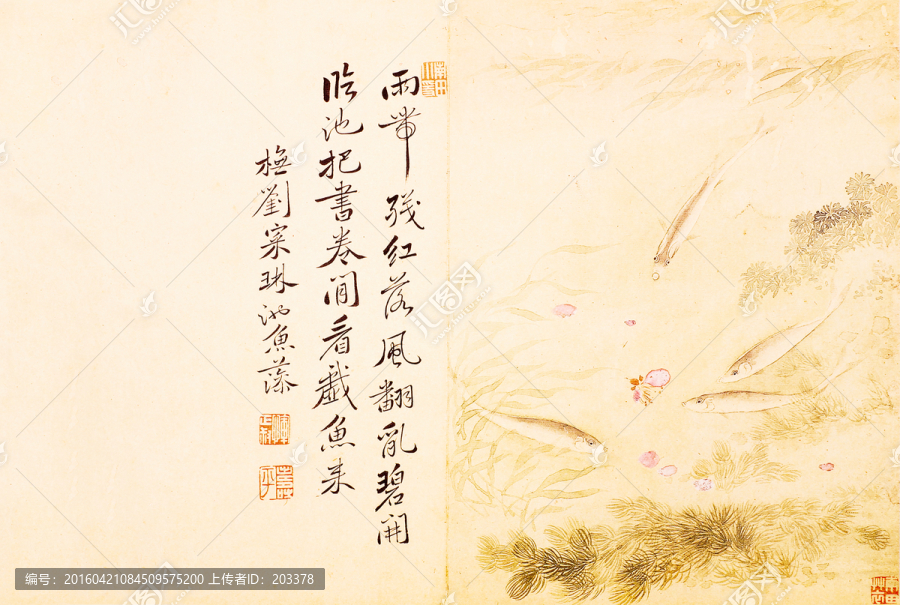 雨帶殘紅落風翻亂碧開
臨池把書卷閒看戲魚來
橅劉寀琳池魚藻
编号：20160421084509575200 上传者ID：203378